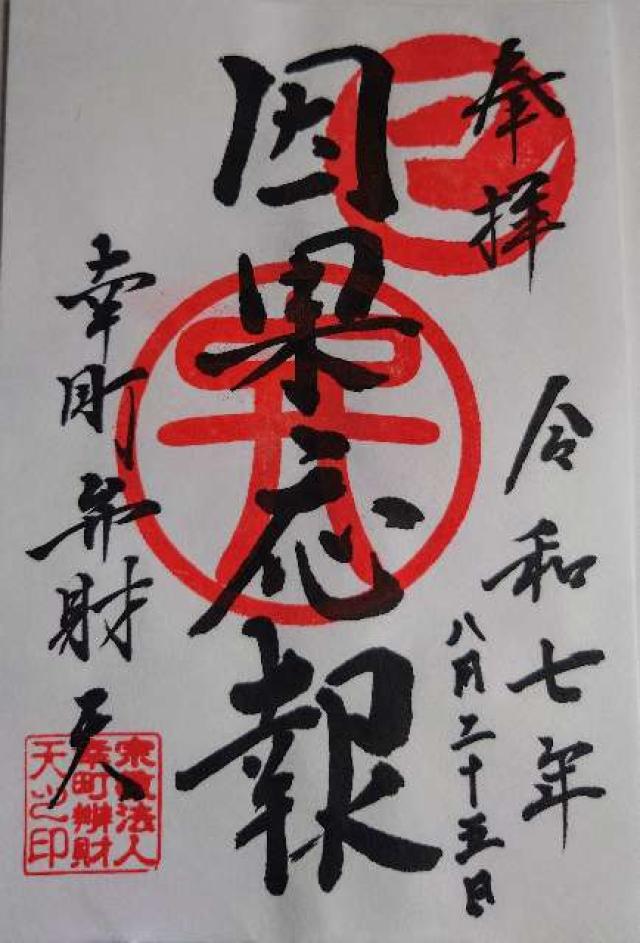 奉拝
令和七年
八月二十五日
因果応報
幸町弁財天
宗教法人
幸町辨財
天之印